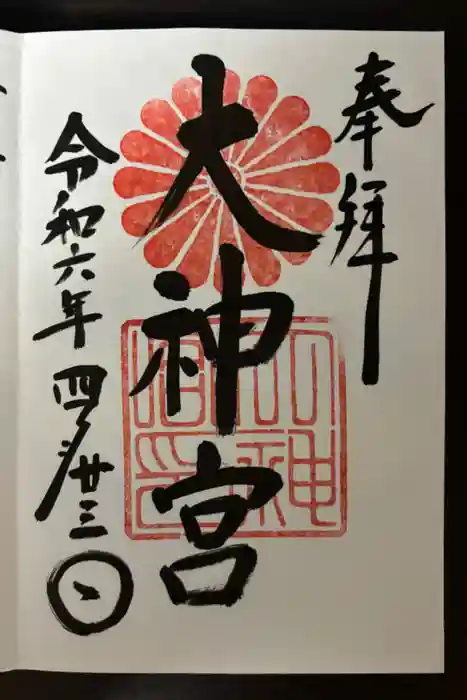 奉拝
大神宮
令和六年四月廿三日